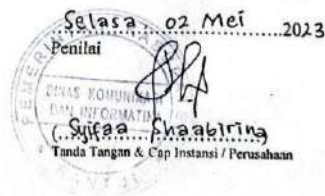 Selasa, 02 Mei 2023
Penilai
DINAS KOMUNIKA
DAN INFORMATIK
(Syifaa Shaabirina)
Tanda Tangan & Cap Instansi / Perusahaan